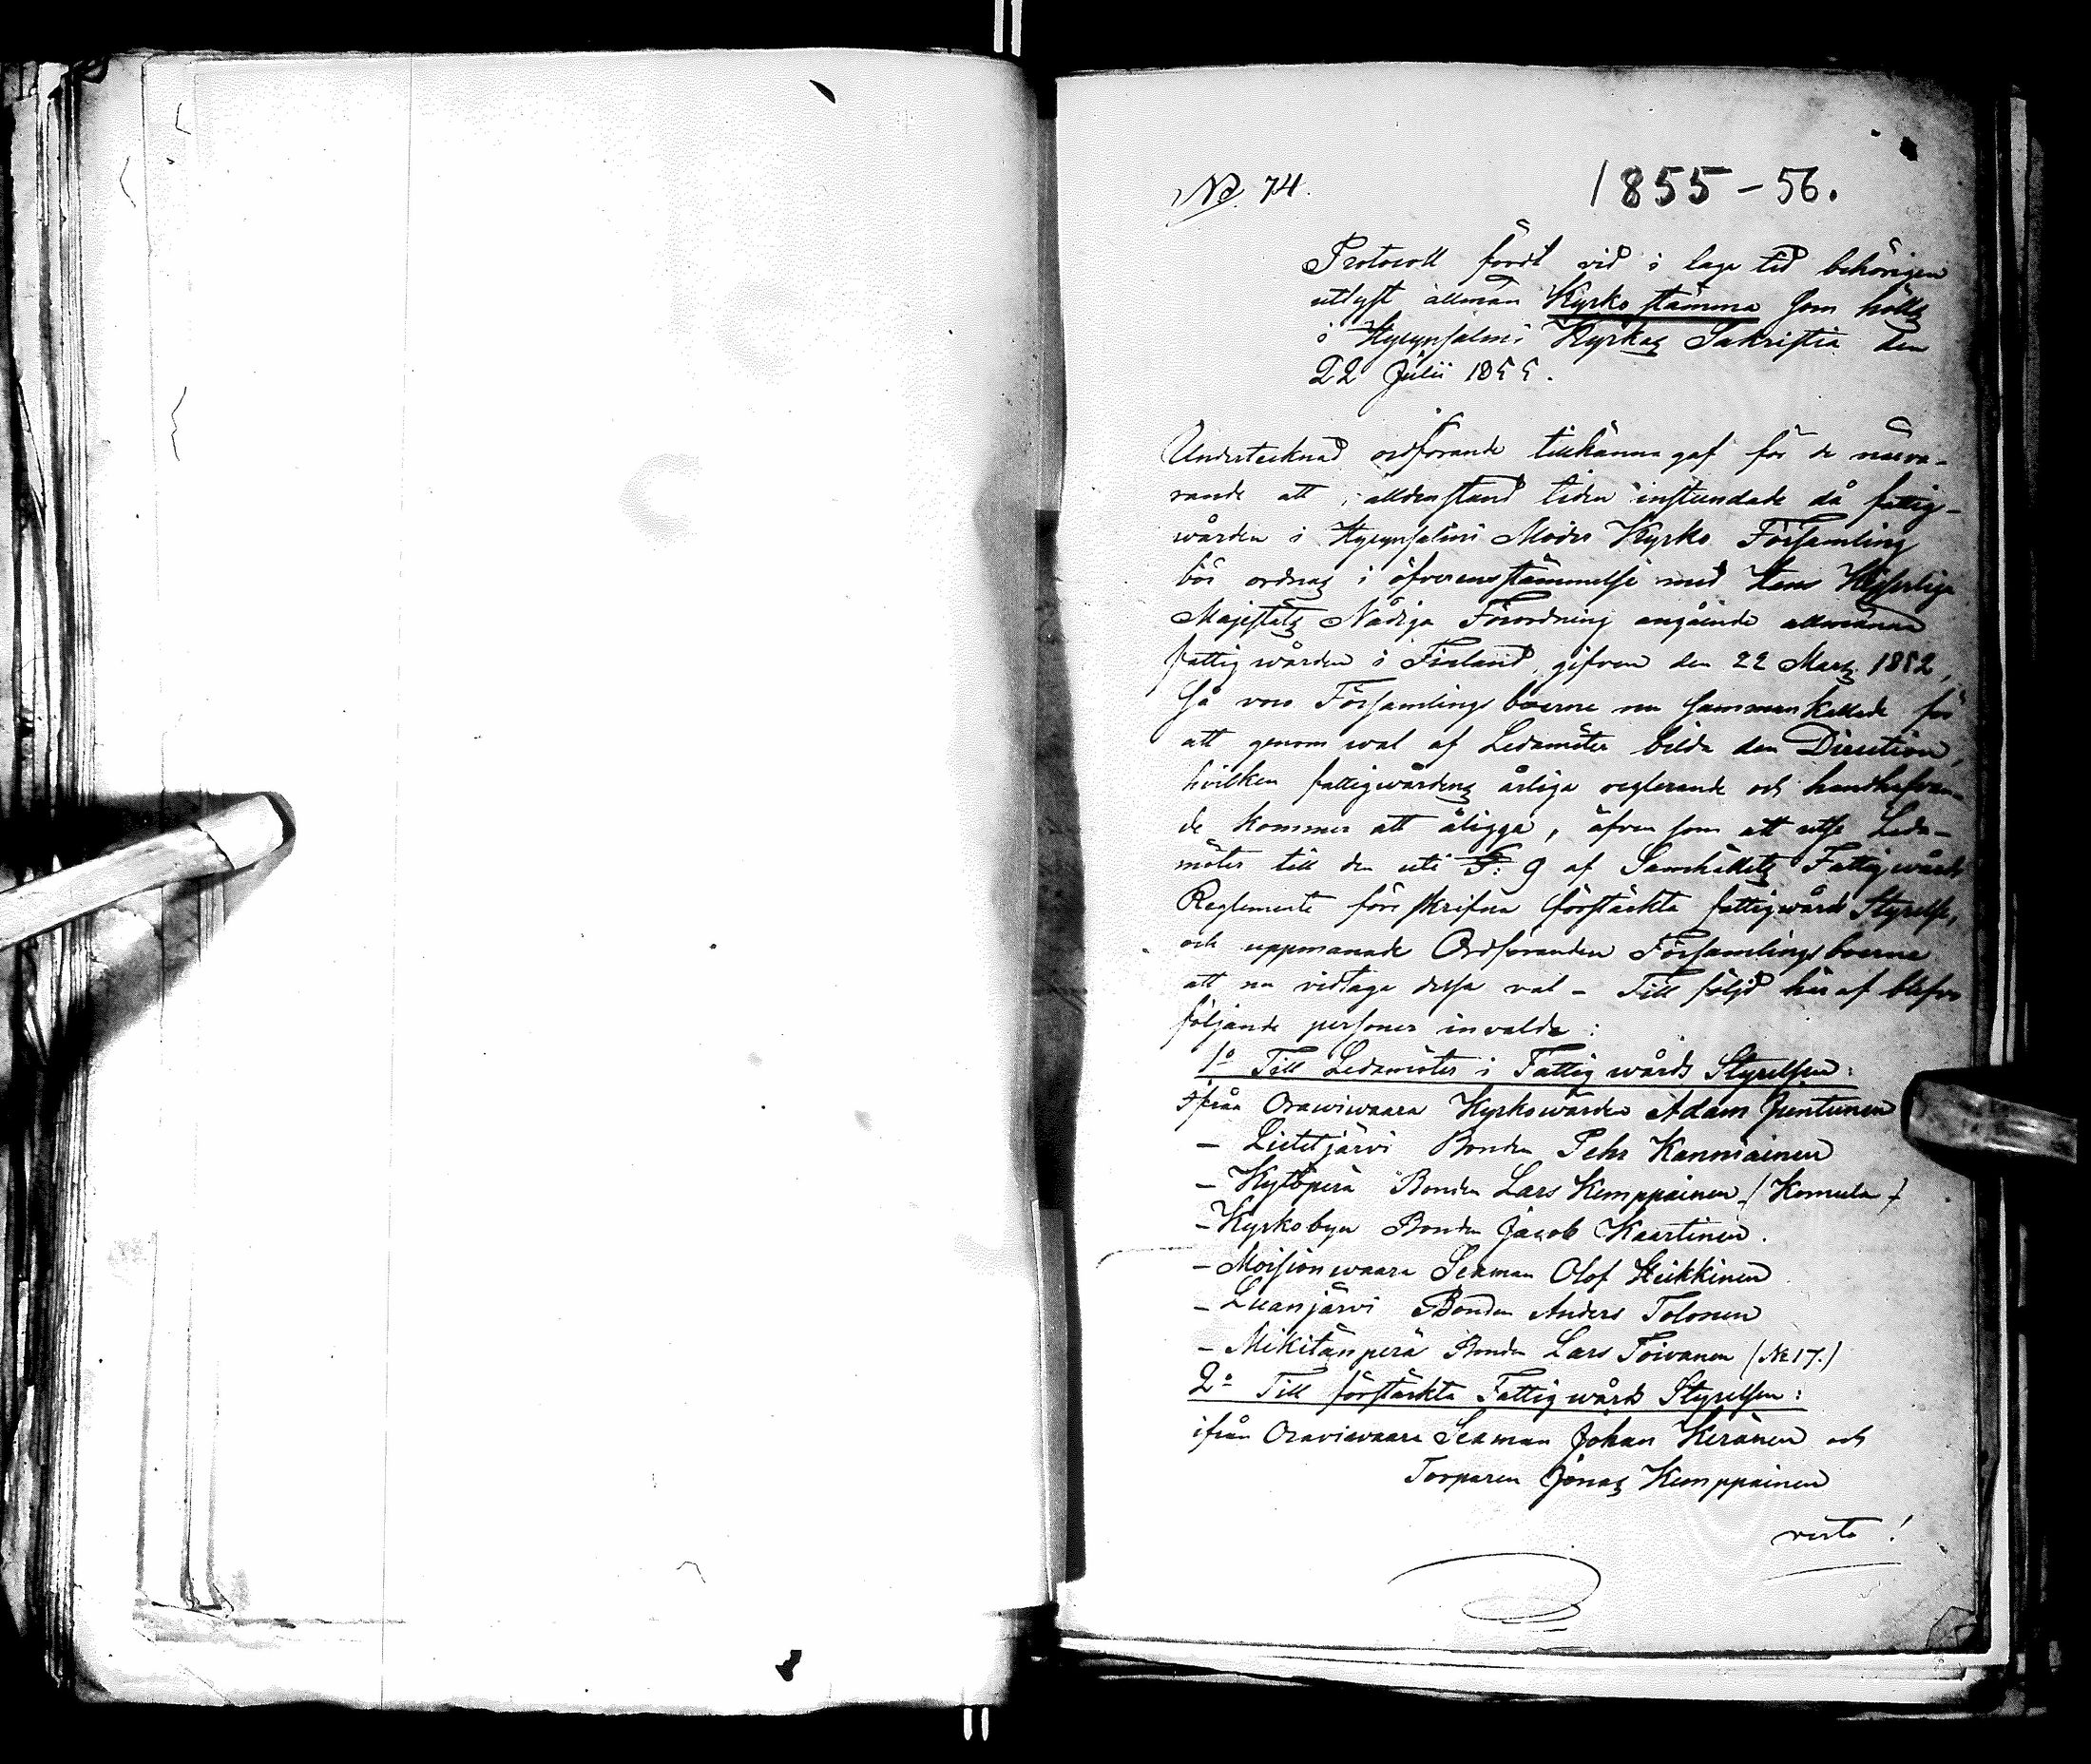 No. 74.
1855-56.
Protocoll fördt vid i laga tid behörigen
utlyst allmän Kyrkostämma som hölls
i Hyrynsalmi Kyrkas Sakristia den
22 Julii 1855.
Undertecknad ordförande tillkännagaf för de närva-
rande att, alldenstund tiden instundade då fattig-
wården i Hyrynsalmi Moder Kyrko Församling
bör ordnas i öfverensstämmelse med Hans Kejserliga
Majestäts Nådiga Förordning angående allmänna
fattigwården i Finland, gifven den 22 Mars 1852,
så voro Församlingsboerne nu sammankallade för
att genom wal af Ledamöter bilda den Direction,
hvilken fattigwårdens årliga reglerande och handhafvan-
de kommer att åligga, äfven som att utse Leda-
möter till den uti §: 9 af Samhällets Fattigwårds
Reglemente föreskrifna förstärkta fattigwårds Styrelse,
och uppmanade Ordföranden Församlingsboerne
att nu vidtaga dessa val - Till följd häraf blefvo
följande personer invalde:
1o Till Ledamöter i Fattigwårds Styrelsen:
ifrån Oraviwaara Kyrkowärden Adam Juntunen
- Lietetjärvi Bonden Pehr Kanniainen
- Kytöperä Bonden Lars Kemppainen (Komula)
- Kyrkobyn Bonden Jacob Kaartinen.
- Moisionwaara Sexman Olof Heikkinen
- Luanjärvi Bonden Anders Tolonen
- Mikitänperä Bonden Lars Toivanen (No 17.)
2o Till förstärkta Fattigwårds Styrelsen:
ifrån Oraviwaara Sexman Johan Keränen och
Torparen Jonas Kemppainen
verte!